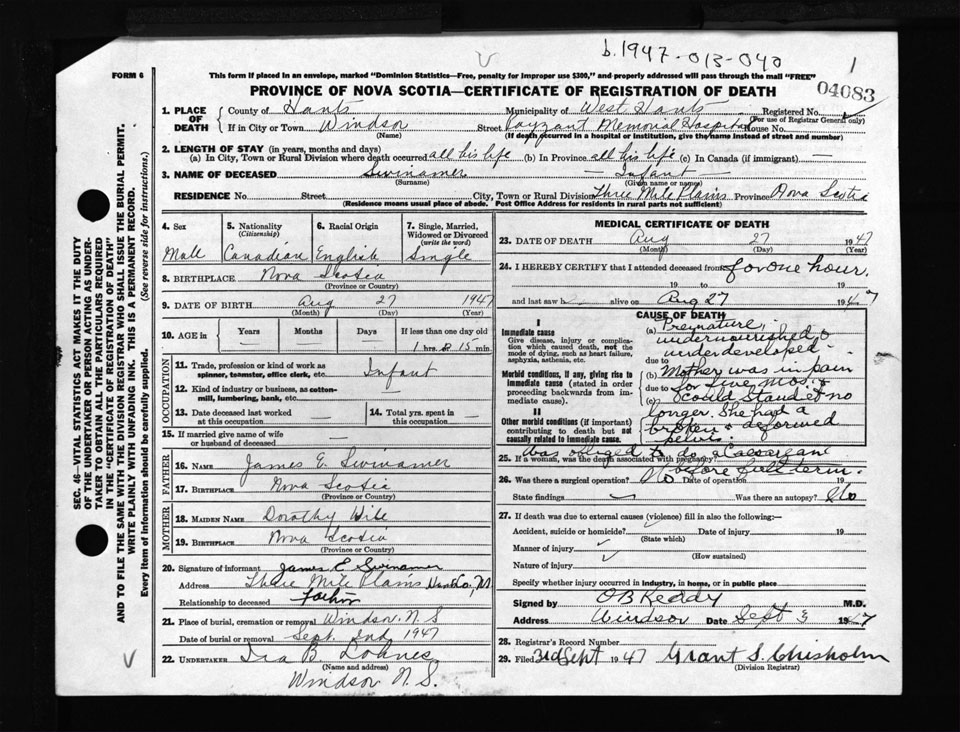 b. 1947-013-040
1
04083
FORM 6
This form if placed in an envelope, marked "Dominion Statistics—Free, penalty for improper use $300," and properly addressed will pass through the mail "FREE"
PROVINCE OF NOVA SCOTIA—CERTIFICATE OF REGISTRATION OF DEATH
1. PLACE OF DEATH
County of Hants Municipality of West Hants Registered No.
(For use of Registrar General only)
If in City or Town Windsor Street Payzant Memorial Hospital House No.
(Name) (If death occurred in a hospital or institution, give the name instead of street and number)
2. LENGTH OF STAY (in years, months and days)
(a) In City, Town or Rural Division where death occurred all his life (b) In Province all his life (c) In Canada (if immigrant) —
3. NAME OF DECEASED Swinamer — Infant —
(Surname) (Given name or names)
RESIDENCE No. Street City, Town or Rural Division Three Mile Plains Province Nova Scotia
(Residence means usual place of abode. Post Office Address for residents in rural parts not sufficient)
4. Sex
Male
5. Nationality
(Citizenship)
Canadian
6. Racial Origin
English
7. Single, Married,
Widowed or Divorced
(write the word)
Single
8. BIRTHPLACE Nova Scotia
(Province or Country)
9. DATE OF BIRTH Aug 27 1947
(Month) (Day) (Year)
10. AGE in Years Months Days If less than one day old
— 1 hrs. 15 min.
OCCUPATION
11. Trade, profession or kind of work as
spinner, teamster, office clerk, etc. Infant
12. Kind of industry or business, as cotton-
mill, lumbering, bank, etc.
13. Date deceased last worked
at this occupation —
14. Total yrs. spent in
this occupation —
15. If married give name of wife
or husband of deceased —
FATHER
16. NAME James E. Swinamer
17. BIRTHPLACE Nova Scotia
(Province or Country)
MOTHER
18. MAIDEN NAME Dorothy Wile
19. BIRTHPLACE Nova Scotia
(Province or Country)
20. Signature of informant James E Swinamer
Address Three Mile Plains Hants Co, N.S.
Relationship to deceased Father
21. Place of burial, cremation or removal Windsor N.S
Date of burial or removal Sept. 2nd 1947
22. UNDERTAKER Ira B. Lohnes
(Name and address)
Windsor N.S.
MEDICAL CERTIFICATE OF DEATH
23. DATE OF DEATH Aug 27 1947
(Month) (Day) (Year)
24. I HEREBY CERTIFY that I attended deceased from for one hour.
19 to 19
and last saw h alive on Aug 27 1947
CAUSE OF DEATH
I
Immediate cause
Give disease, injury or complica-
tion which caused death, not the
mode of dying, such as heart failure,
asphyxia, asthenia, etc.
Morbid conditions, if any, giving rise to
immediate cause (stated in order
proceeding backwards from im-
mediate cause).
II
Other morbid conditions (if important)
contributing to death but not
causally related to immediate cause.
(a) Premature,
undernourished &
due to underdeveloped.
(b) Mother was in pain
due to for five mos. &
(c) could stand it no
longer. She had a
broken & deformed
pelvis.
Was obliged to do a Caesarean
25. If a woman, was the death associated with pregnancy?
before full term.
26. Was there a surgical operation? No Date of operation 19
State findings Was there an autopsy? No
27. If death was due to external causes (violence) fill in also the following:—
Accident, suicide or homicide? Date of injury 19
(State which)
Manner of injury
(How sustained)
Nature of injury
Specify whether injury occurred in industry, in home, or in public place
Signed by O B Keddy M.D.
Address Windsor Date Sept 3 1947
28. Registrar's Record Number
29. Filed 3rd Sept 1947 Grant S. Chisholm
(Division Registrar)
SEC. 46—VITAL STATISTICS ACT MAKES IT THE DUTY
OF THE UNDERTAKER OR PERSON ACTING AS UNDER-
TAKER TO OBTAIN ALL THE PARTICULARS REQUIRED
IN THE "CERTIFICATE OF REGISTRATION OF DEATH"
AND TO FILE THE SAME WITH THE DIVISION REGISTRAR WHO SHALL ISSUE THE BURIAL PERMIT.
WRITE PLAINLY WITH UNFADING INK. THIS IS A PERMANENT RECORD.
Every item of information should be carefully supplied. (See reverse side for instructions.)